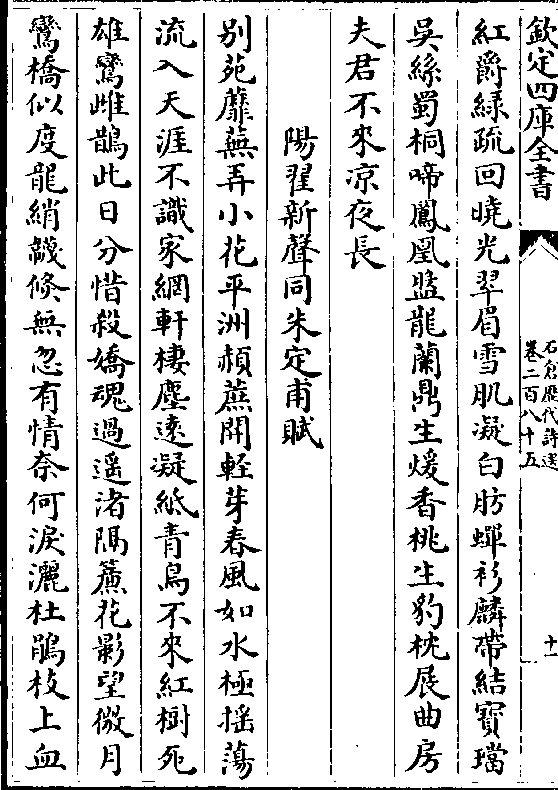 欽定四庫全書
石倉歷代詩選
卷二百八十五
十一
紅爵綠疏回曉光翠眉雪肌凝白肪蟬衫麟帶結寳璫
吳絲蜀桐啼鳳凰盤龍蘭鼎生煖香桃生豹枕展曲房
夫君不來凉夜長
陽翟新聲同朱定甫賦
别苑蘼蕪弄小花平洲赬蕉開輕芽春風如水極搖蕩
流入天涯不識家網軒棲塵逺凝紙青鳥不來紅樹死
雄鸞雌鵲此日分惜殺嬌魂過遥渚隔簾花影望微月
鸞橋似度龍綃韈倐無忽有情奈何淚灑杜鵑枝上血